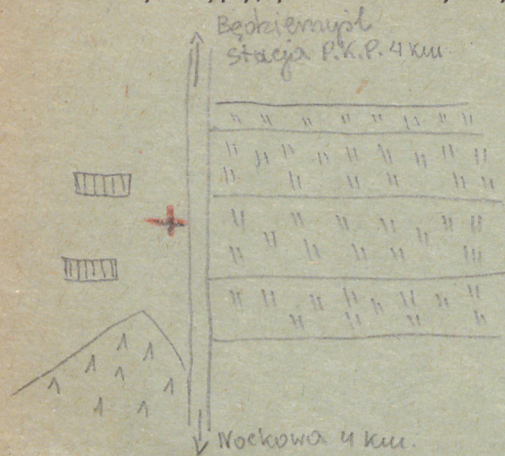 Będziemyśl
Stacja P.K.P. 4 km
Nockowa 4 km.